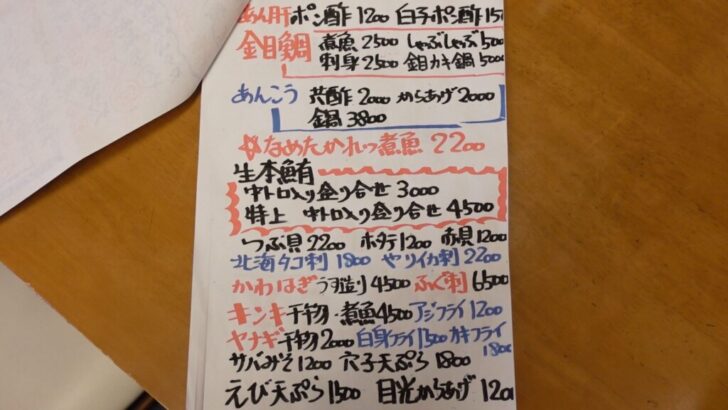 あん肝ポン酢 1200 白子ポン酢 150
金目鯛 煮魚 2500 しゃぶしゃぶ 500
刺身 2500 金目カキ鍋 5000
あんこう 共酢 2000 からあげ 2000
鍋 3800
☆なめたかれい煮魚 2200
生本鮪
中トロ入り盛り合せ 3000
特上 中トロ入り盛り合せ 4500
つぶ貝 2200 ホタテ 1200 赤貝 1200
北海タコ刺 1800 ヤリイカ刺 2200
かわはぎうす造り 4500 ふぐ刺 6500
キンキ干物・煮魚 4500 アジフライ 1200
ヤナギ干物 2000 白身フライ 1500 カキフライ
1800
サバみそ 1200 穴子天ぷら 1800
えび天ぷら 1500 目光からあげ 120